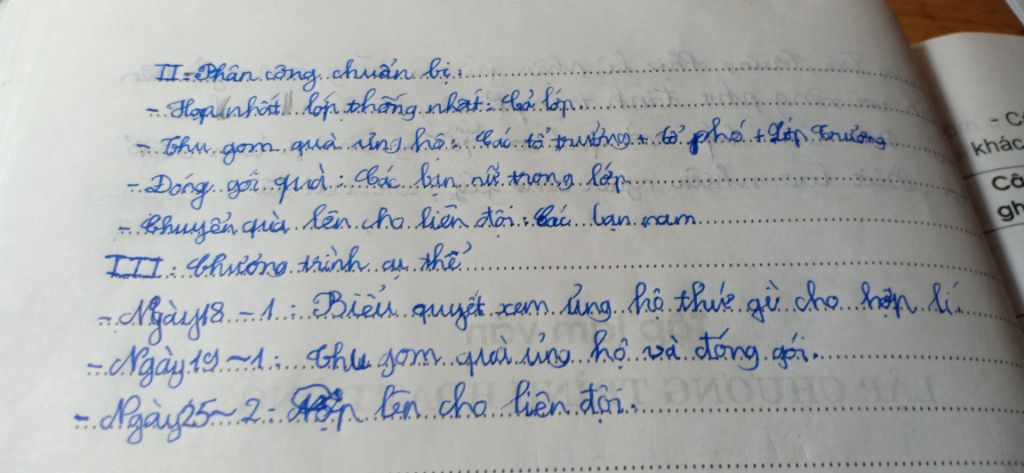 II - Phân công chuẩn bị.
- Họp nhất lớp thống nhất: Cả lớp.
- Thu gom quà ủng hộ: Các tổ trưởng + tổ phó + Lớp trưởng
- Đóng gói quà: Các bạn nữ trong lớp.
- Chuyển quà lên cho liên đội: Các bạn nam
III: Chương trình cụ thể
- Ngày 18 - 1: Biểu quyết xem ủng hộ thức gì cho hợp lí.
- Ngày 19 - 1: Thu gom quà ủng hộ và đóng gói.
- Ngày 25 - 2: Nộp lên cho liên đội.
khác
gh